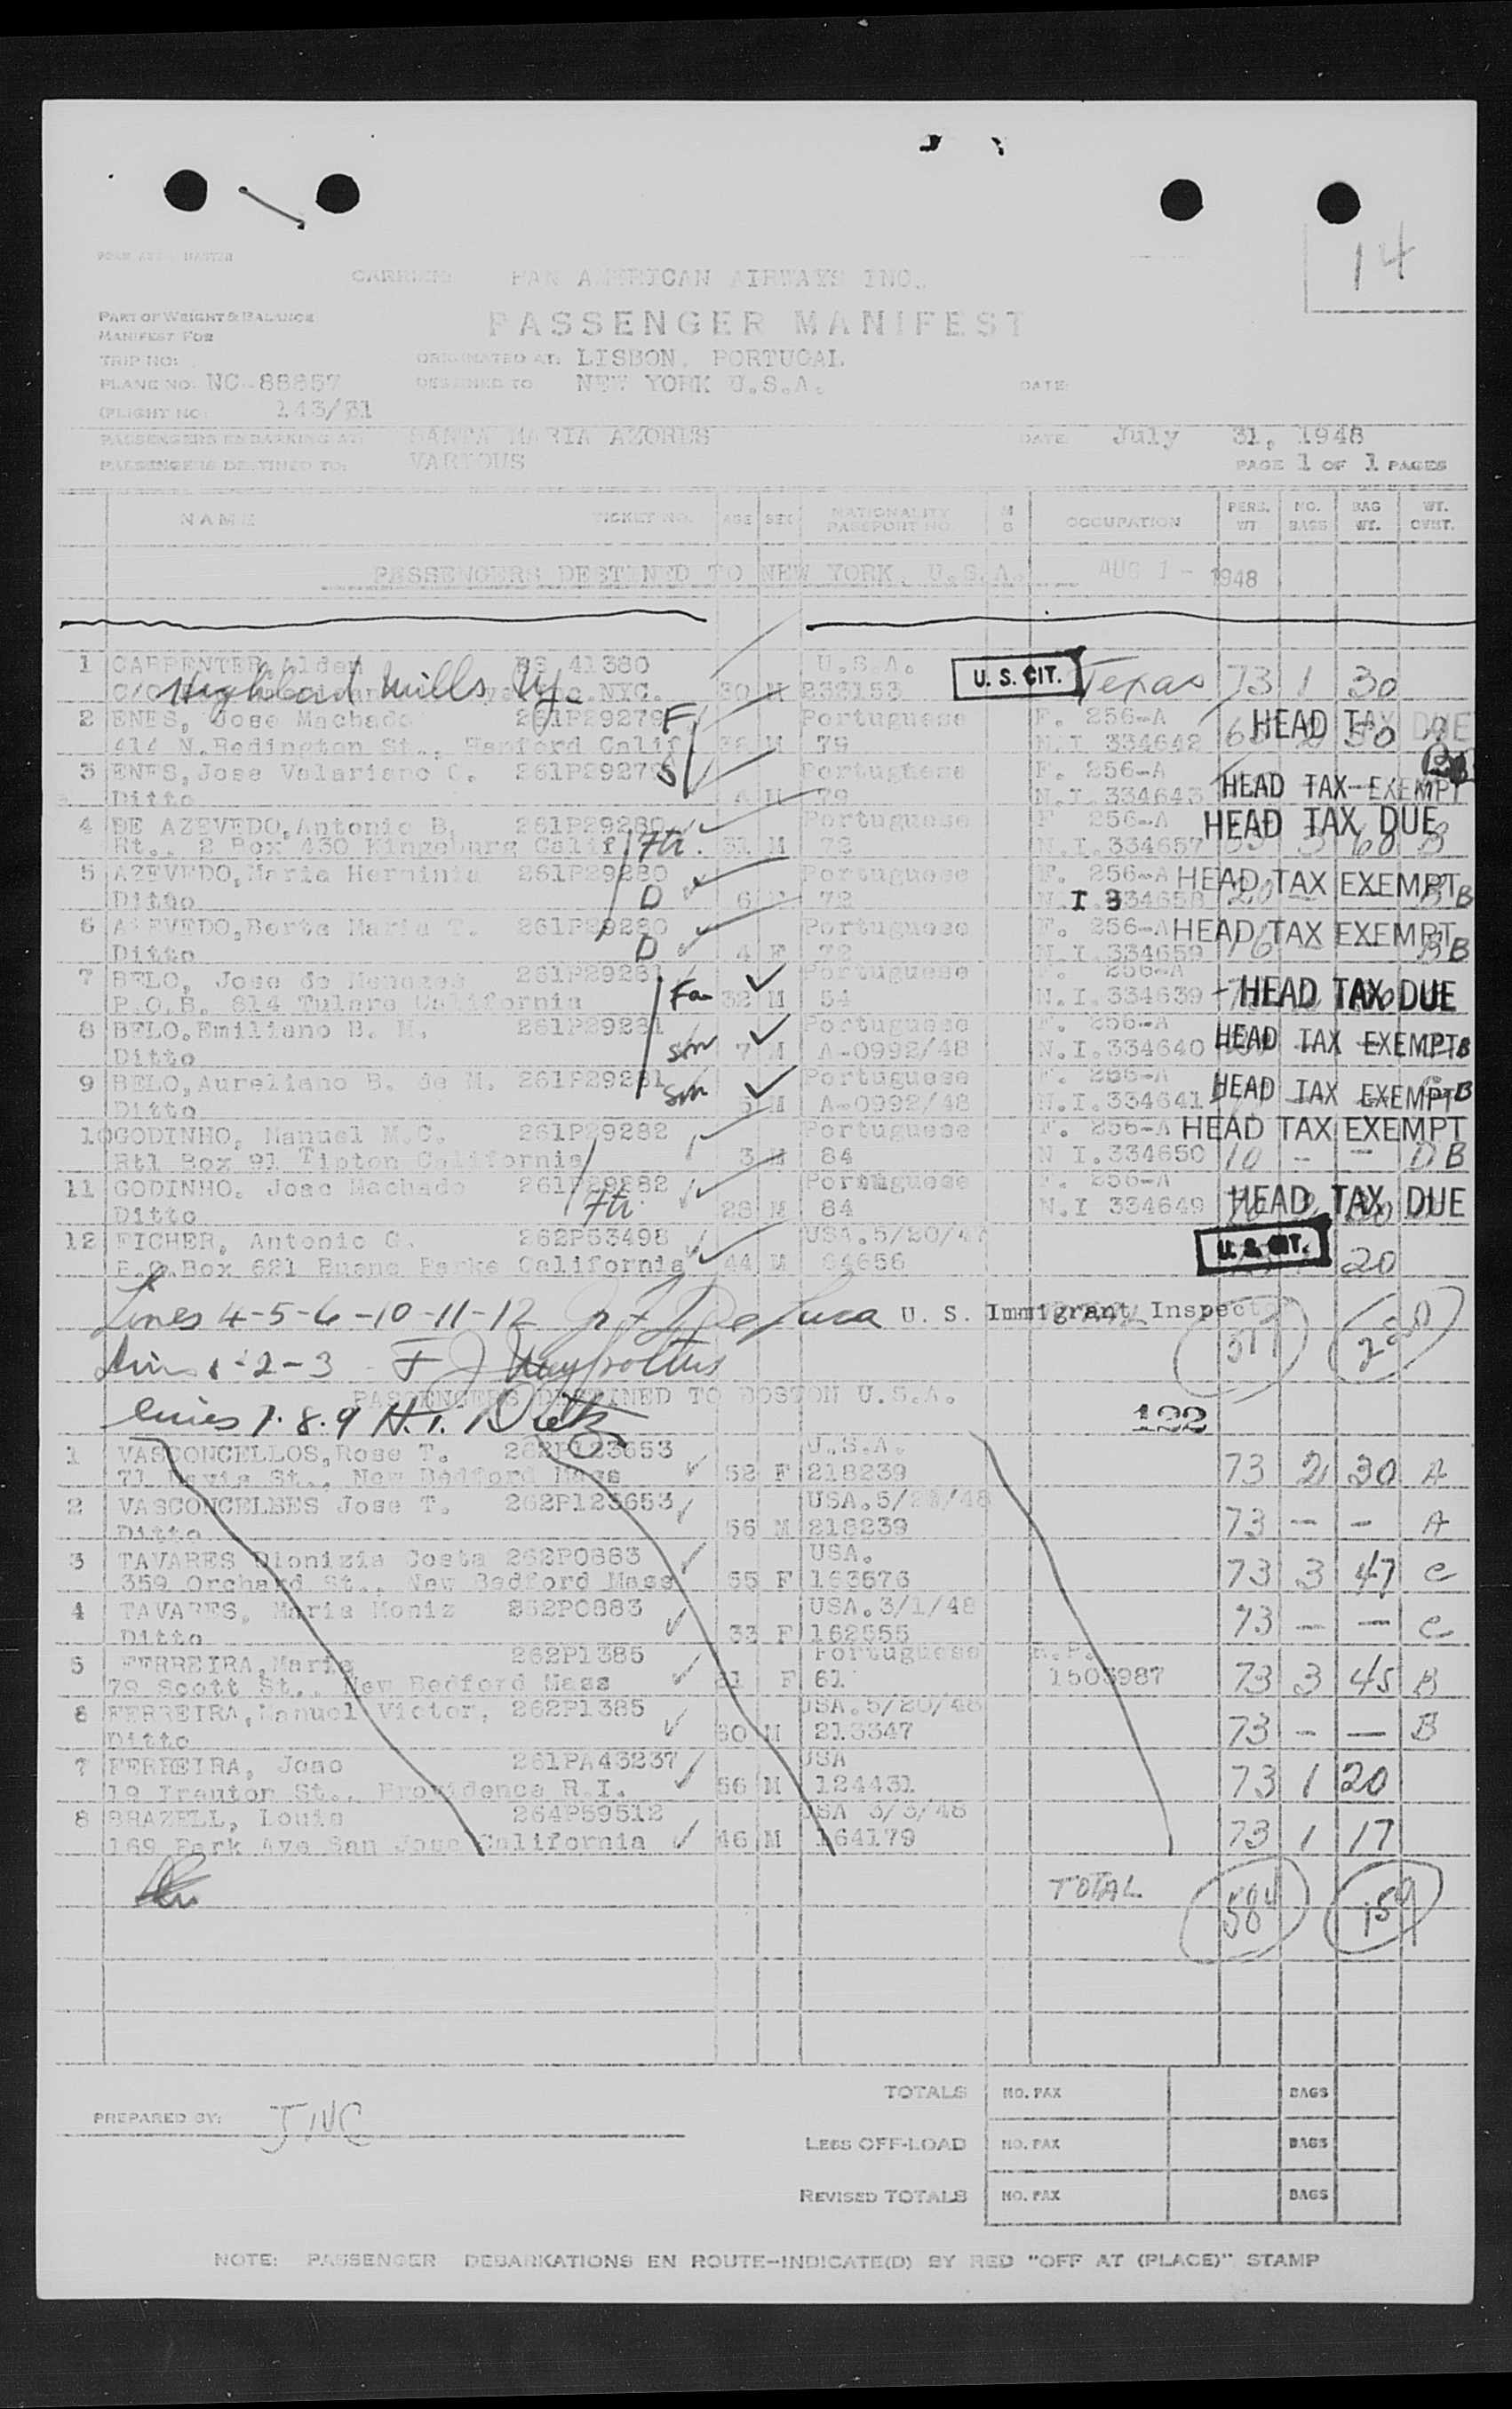 14
CARRIER: PAN AMERICAN AIRWAYS INC.
PART OF WEIGHT & BALANCE
MANIFEST FOR
PASSENGER MANIFEST
TRIP NO:
ORIGINATED AT: LISBON, PORTUGAL
PLANE NO. NC-88857
DESTINED TO NEW YORK U.S.A.
DATE:
(FLIGHT NO: 143/31
PASSENGERS EMBARKING AT: SANTA MARIA AZORES
DATE: July 31, 1948
PASSENGERS DESTINED TO: VARIOUS
PAGE 1 OF 1 PAGES
NAME TICKET NO. AGE SEX NATIONALITY PASSPORT NO. M S OCCUPATION PERS. WT NO. BAGS BAG WT. WT. CVRT.
PASSENGERS DESTINED TO NEW YORK, U.S.A. AUG 1 - 1948
1 CARPENTER, Alden 41380 U.S.A. U. S. CIT. Texas 73 1 30
Highland Mills NY NYC. 30 M 233153
2 ENES, Jose Machado 261P29279 F Portuguese F. 256-A HEAD TAX DUE
414 N. Redington St., Hanford Calif M 79 N.I 334642 50
3 ENES, Jose Valariano C. 261P29279 S Portuguese F. 256-A
Ditto M 79 N.I. 334643 HEAD TAX EXEMPT
4 DE AZEVEDO, Antonio B. 261P29280 Portuguese F 256-A HEAD TAX DUE
Rt., 2 Box 430 Kingsburg Calif Fa. 31 M 72 N.I. 334657 3 60 B
5 AZEVEDO, Maria Herminia 261P29280 Portuguese F. 256-A HEAD TAX EXEMPT
Ditto D 6 72 N.I 334658 B
6 AZEVEDO, Berta Maria T. 261P29280 Portuguese F. 256-A HEAD TAX EXEMPT
Ditto D 4 F 72 N.I. 334659 16 B B
7 BELO, Jose de Menezes 261P29281 Portuguese F. 256-A
P.O.B. 814 Tulare California Fa 32 M 54 N.I. 334639 HEAD TAX DUE
8 BELO, Emiliano B. M. 261P29281 Portuguese F. 256-A
Ditto Son 7 M A-0992/48 N.I. 334640 HEAD TAX EXEMPT B
9 BELO, Aureliano B. de M. 261P29281 Portuguese F. 256-A
Ditto Son 5 M A-0992/48 N.I. 334641 HEAD TAX EXEMPT B
10 GODINHO, Manuel M.C. 261P29282 Portuguese F. 256-A HEAD TAX EXEMPT
Rt1 Box 91 Tipton California 3 M 84 N I. 334650 10 - - D B
11 GODINHO, Jose Machado 261P29282 Portuguese F. 256-A
Ditto Fa. 28 M 84 N.I 334649 HEAD TAX DUE
12 FICHER, Antonio G. 262P53498 USA. 5/20/47 U. S. CIT.
P.O. Box 621 Buena Parke California 44 M 64656 20
Lines 4-5-6-10-11-12 DeLuca U. S. Immigrant Inspector
Lines 1-2-3 F J
PASSENGERS DESTINED TO BOSTON U.S.A.
lines 7.8.9 H.T. Dietz 122
1 VASCONCELLOS, Rose T. 262P123653 U.S.A.
71 Davis St., New Bedford Mass 52 F 218239 73 2 30 A
2 VASCONCELLES Jose T. 262P123653 USA. 5/23/48
Ditto 56 M 218239 73 - - A
3 TAVARES Dionizia Costa 262P0883 USA.
359 Orchard St., New Bedford Mass 55 F 163576 73 3 47 C
4 TAVARES, Maria Moniz 262P0883 USA. 3/1/48
Ditto 33 F 162555 73 - - C
5 FERREIRA, Maria 262P1385 Portuguese R.P.
79 Scott St., New Bedford Mass F 61 1503987 73 3 45 B
6 FERREIRA, Manuel Victor, 262P1385 USA. 5/20/48
Ditto M 213347 73 - - B
7 FERREIRA, Joao 261PA43237 USA
19 St., Providence R.I. 56 M 124431 73 1 20
8 BRAZELL, Louis 264P59512 USA 3/3/48
169 Park Ave San Jose California 46 M 164179 73 1 17
TOTAL 584 159
TOTALS NO. PAX BAGS
PREPARED BY: JNC
LESS OFF-LOAD NO. PAX BAGS
REVISED TOTALS NO. PAX BAGS
NOTE: PASSENGER DEBARKATIONS EN ROUTE-INDICATE(D) BY RED "OFF AT (PLACE)" STAMP